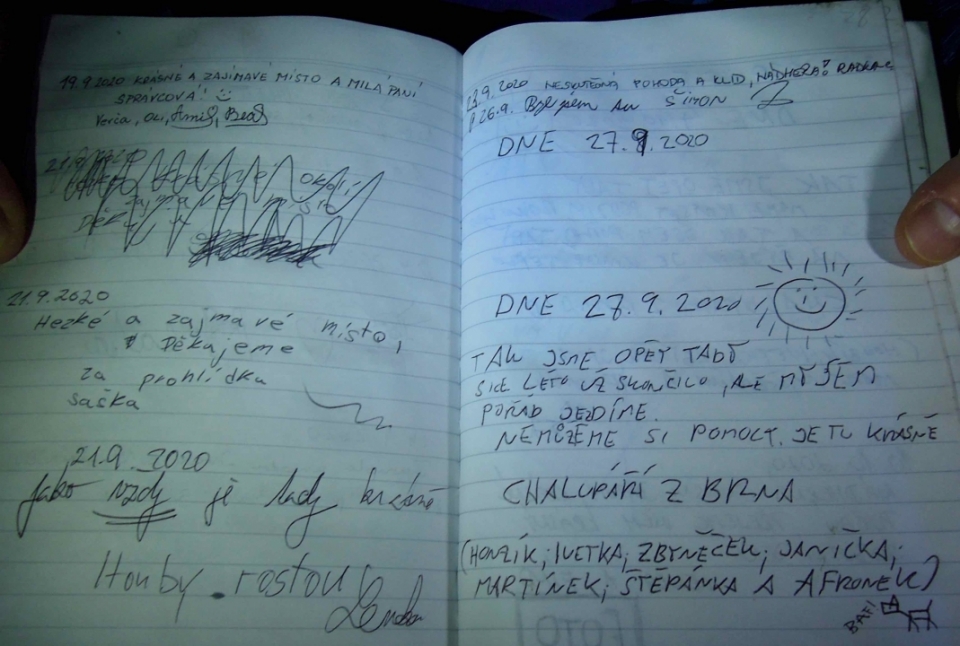 19.9.2020 KRÁSNÉ A ZAJÍMAVÉ MÍSTO A MILÁ PANÍ
SPRÁVCOVÁ!
21.9.2020
okolí
21.9.2020
Hezké a zajmavé místo,
Děkajeme
za prohlídka
saška
21.9.2020
Jako vzdy je tady krásně
Houby rostou
23.9.2020 NESKUTEČNÁ POHODA A KLID, NÁDHERA! RADKA
26.9. Byl jsem tu ŠIMON
DNE 27.9.2020
DNE 27.9.2020
TAK JSME OPĚT TADY
SICE LÉTO UŽ SKONČILO, ALE MY SEM
POŘÁD JEZDÍME.
NEMŮŽEME SI POMOCT. JE TU KRÁSNĚ
CHALUPÁŘI Z BRNA
(HONZÍK, IVETKA, ZBYNĚČEK, JANIČKA,
MARTÍNEK, ŠTĚPÁNKA A AFRONEK)
BAFI